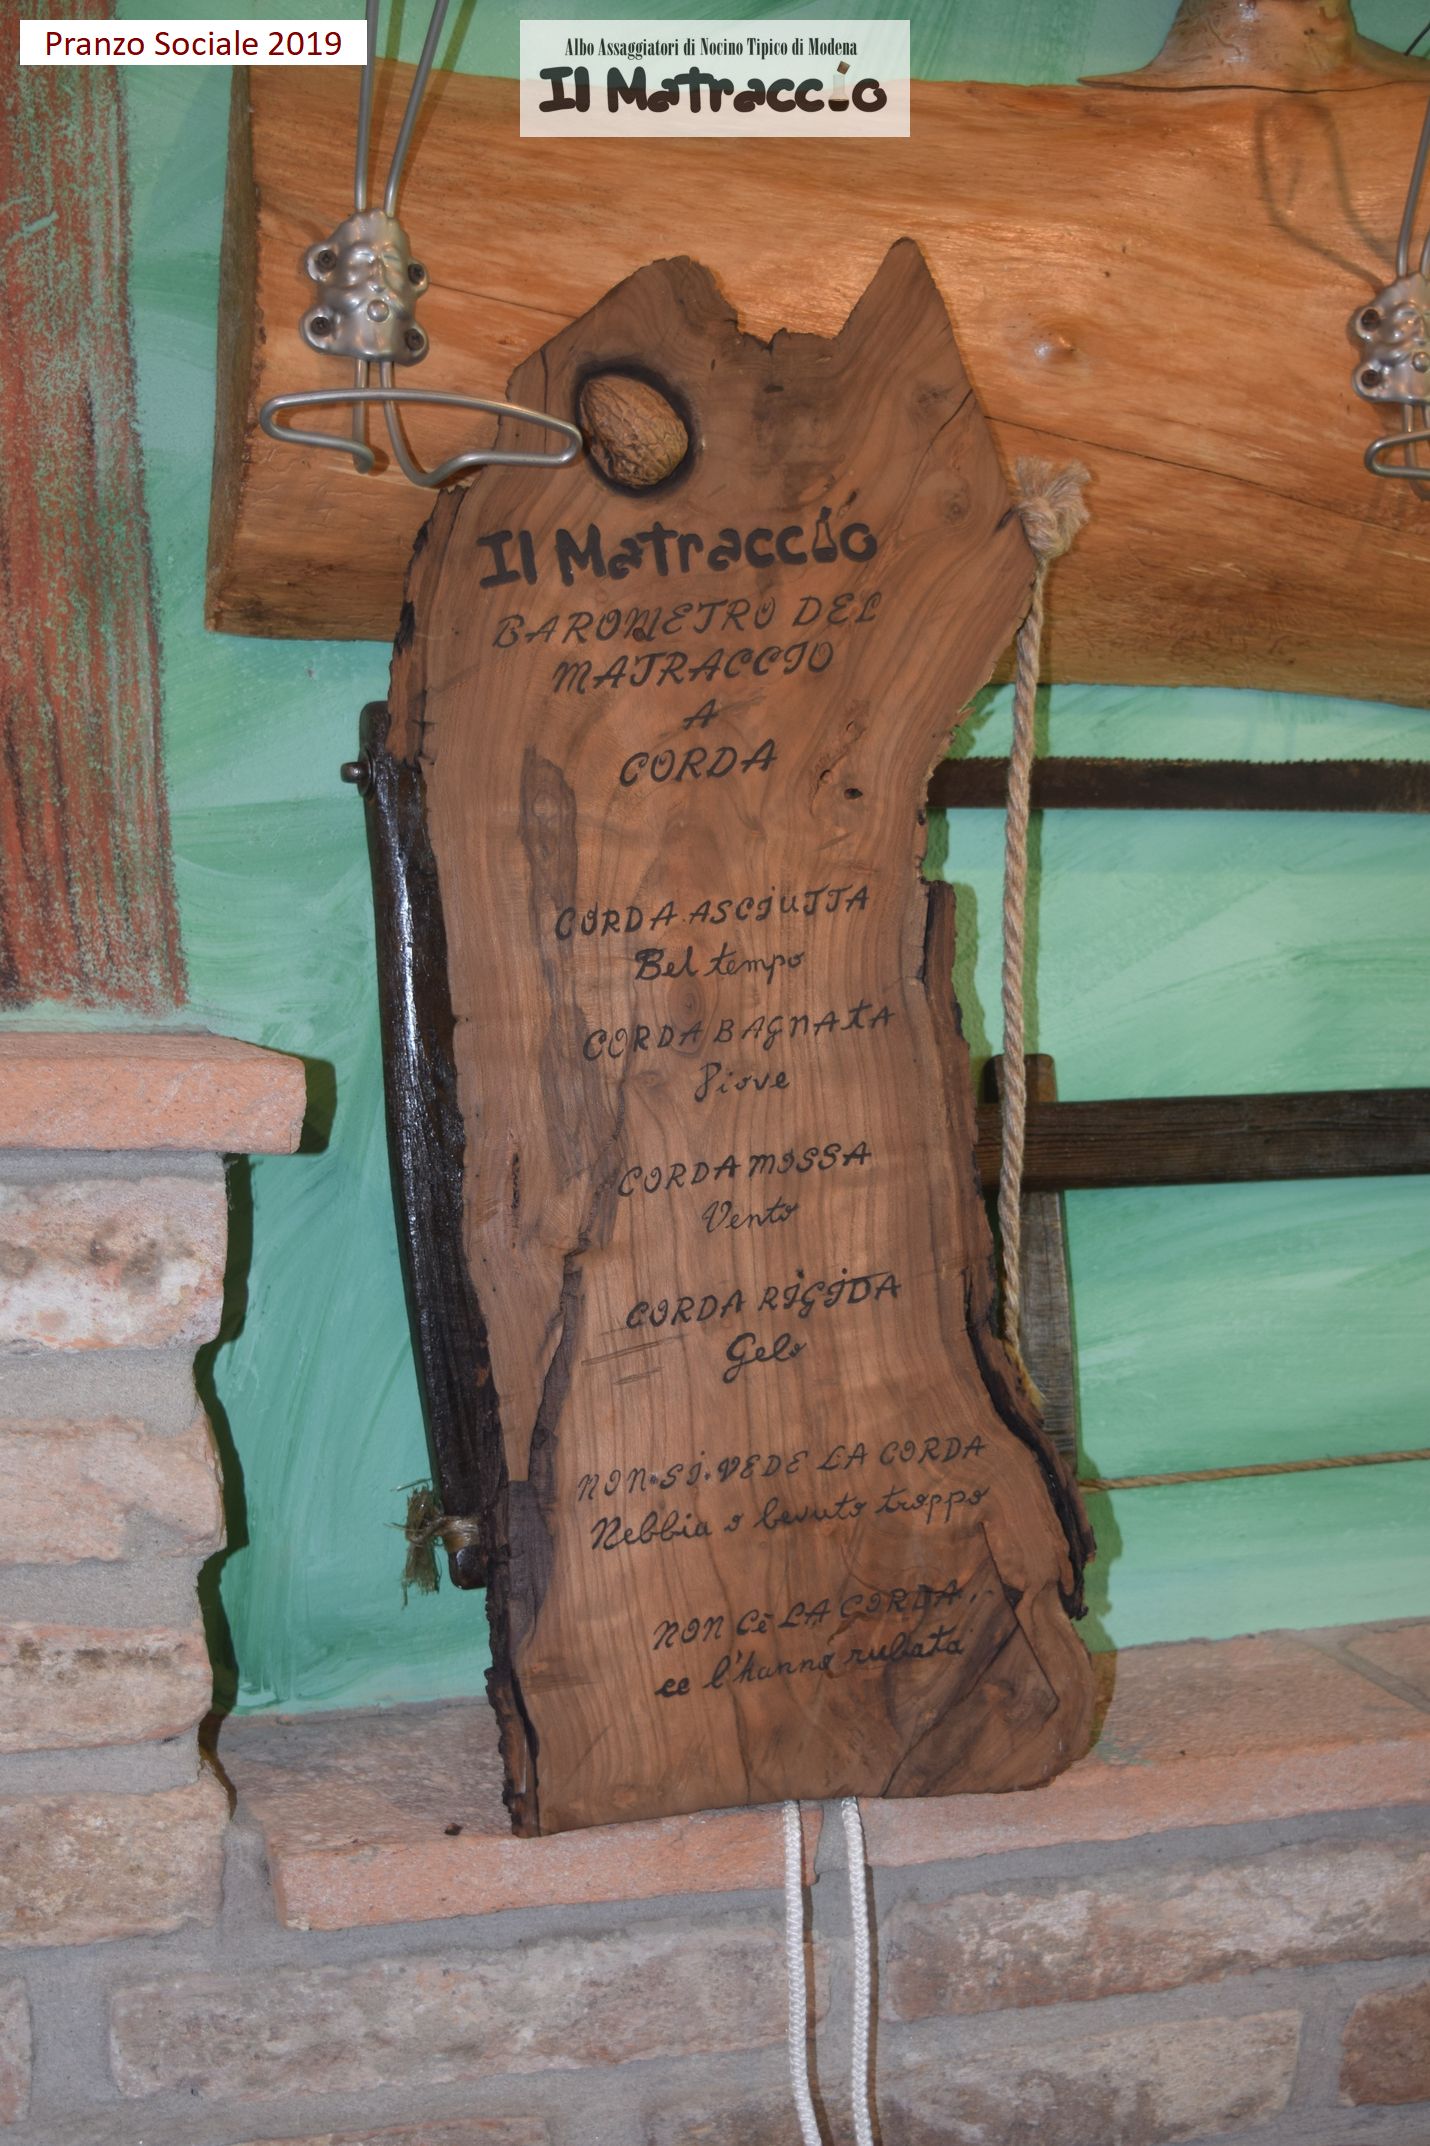 Pranzo Sociale 2019
Albo Assaggiatori di Nocino Tipico di Modena
Il Matraccio
Il Matraccio
BAROMETRO DEL
MATRACCIO
A
CORDA
CORDA ASCiUTTA
Bel tempo
CORDA BAGNATA
Piove
CORDA MOSSA
Vento
CORDA RiGiDA
Gelo
NON.Si.VEDE LA CORDA
Nebbia o bevuto troppo
NON Cè LA CORDA..
ce l'hanno rubata